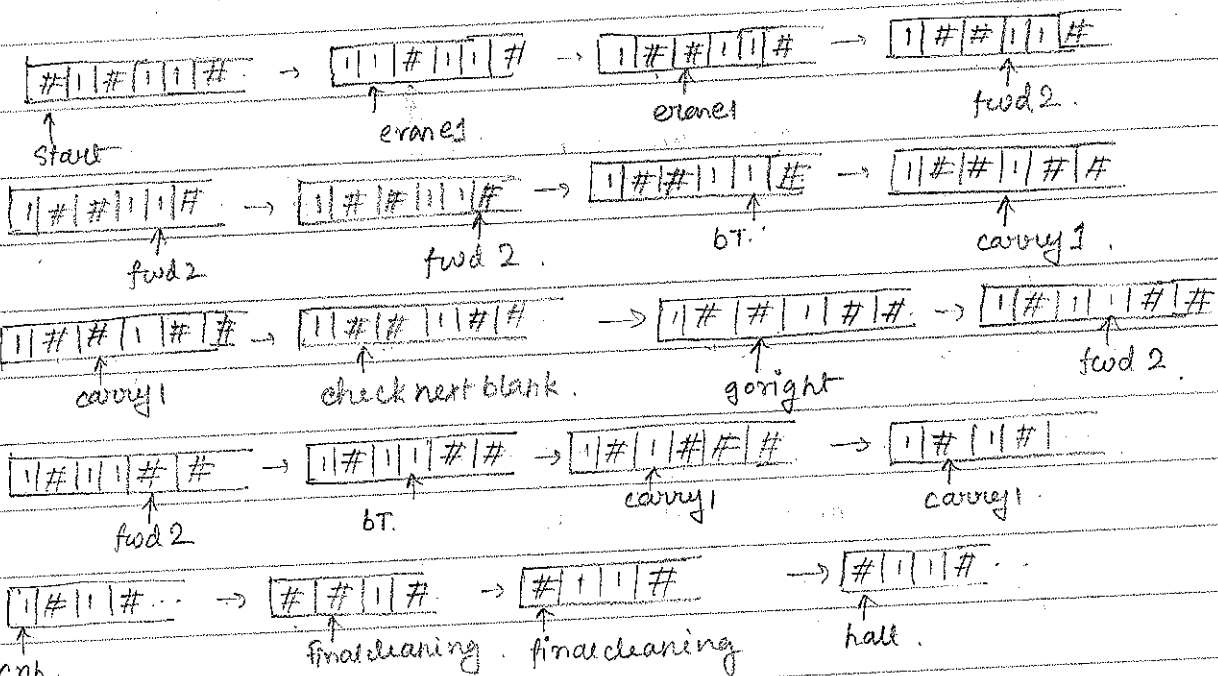 #|1|#|1|1|#.. → 1|1|#|1|1|# → 1|#|#|1|1|# → 1|#|#|1|1|#
start erane1. erane1 fwd 2.
1|#|#|1|1|# → 1|#|#|1|1|# → 1|#|#|1|1|# → 1|#|#|1|#|#
fwd 2 fwd 2. bT. carry 1.
1|#|#|1|#|# → 1|#|#|1|#|# → 1|#|#|1|#|#. → 1|#|1|1|#|#
carry 1 check next blank. goright fwd 2.
1|#|1|1|#|# → 1|#|1|1|#|# → 1|#|1|#|#|# → 1|#|1|#|..
fwd 2 bT. carry 1 carry 1.
1|#|1|#... → #|#|1|#. → #|1|1|# → #|1|1|#..
cnb. finalcleaning. finalcleaning halt.